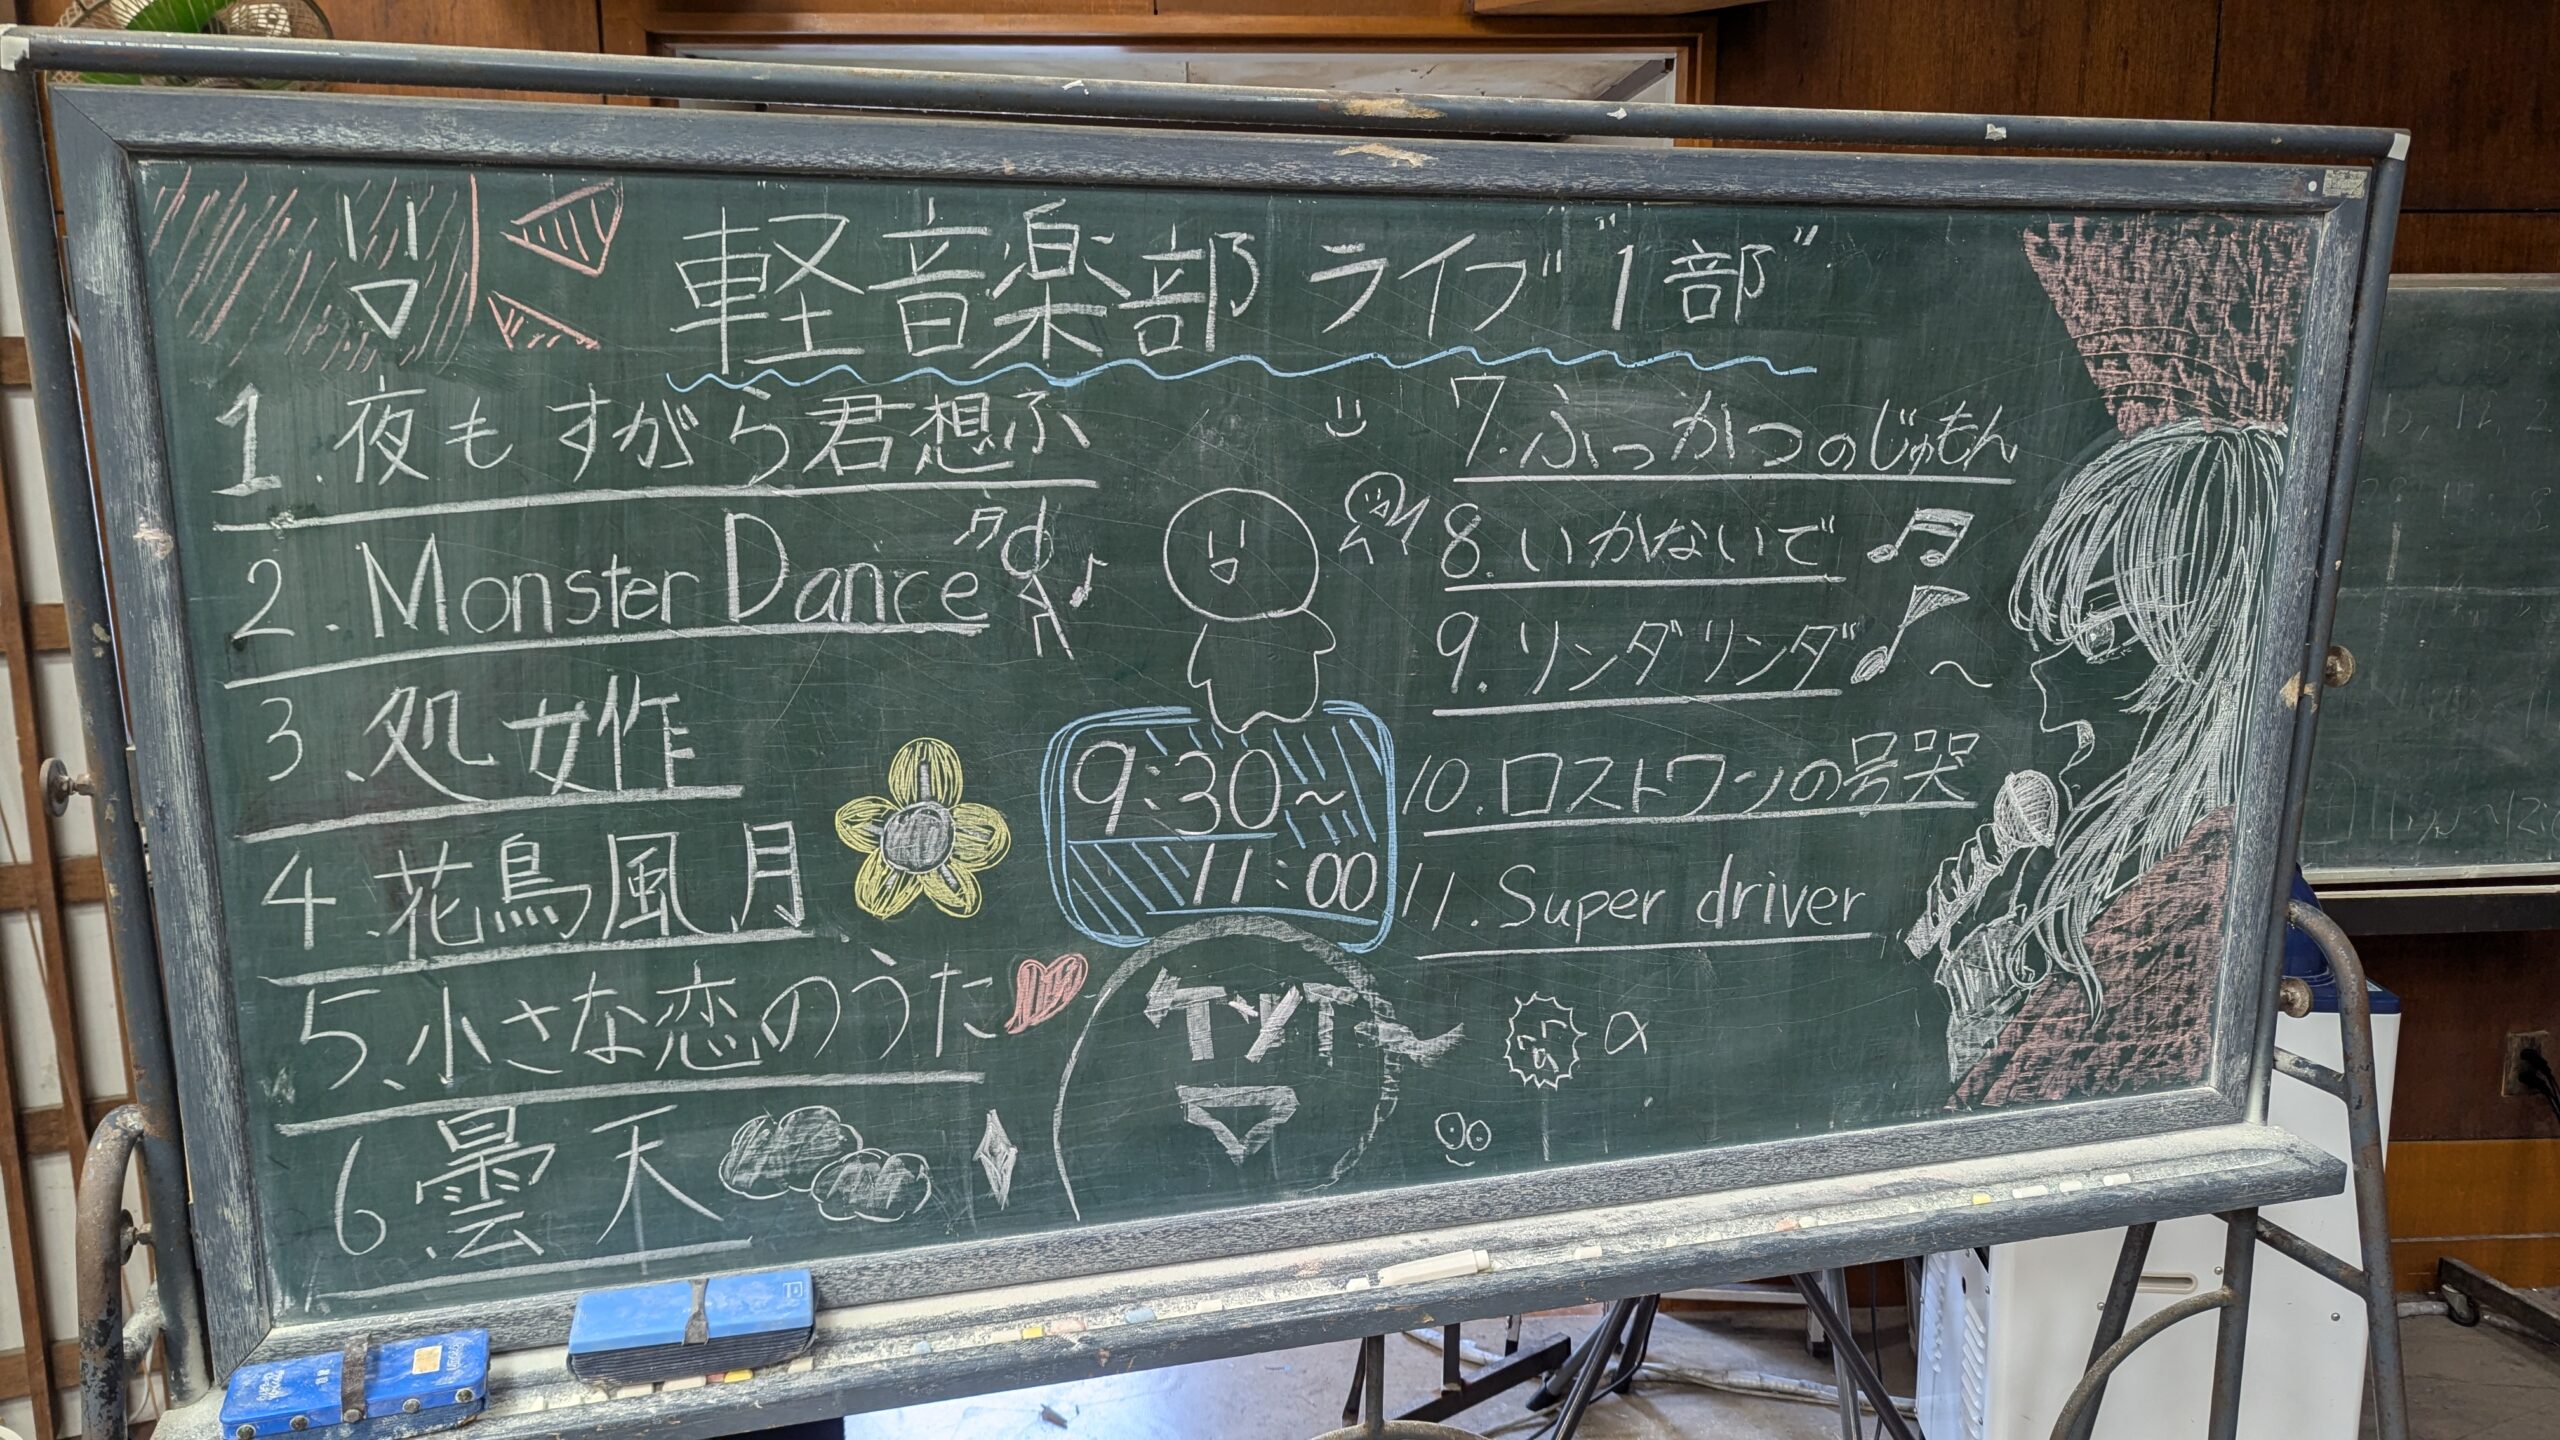 軽音楽部 ライブ "1部"
1.夜もすがら君想ふ
2.Monster Dance
3、処女作
4.花鳥風月
5、小さな恋のうた
6.曇天
9:30~
11:00
7.ふっかつのじゅもん
8.いかないで
9.リンダリンダ~
10.ロストワンの号哭
11.Super driver